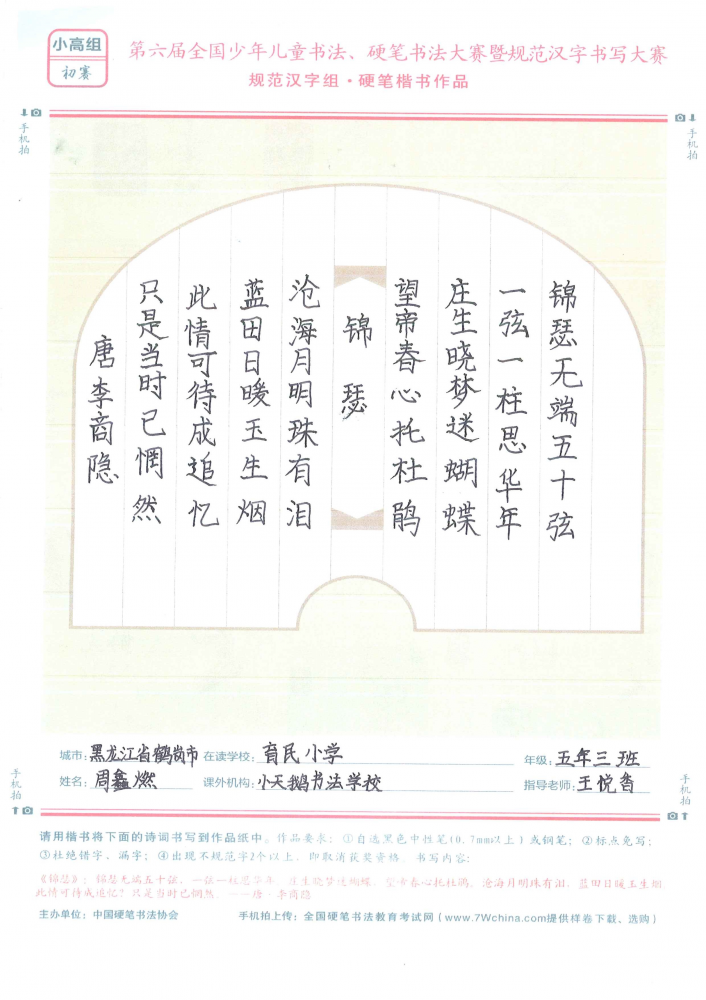 小高组
初赛
第六届全国少年儿童书法、硬笔书法大赛暨规范汉字书写大赛
规范汉字组·硬笔楷书作品
手机拍
手机拍
锦瑟无端五十弦
一弦一柱思华年
庄生晓梦迷蝴蝶
望帝春心托杜鹃
锦瑟
沧海月明珠有泪
蓝田日暖玉生烟
此情可待成追忆
只是当时已惘然
唐李商隐
城市:黑龙江省鹤岗市 在读学校:育民小学 年级:五年三班
姓名:周鑫燃 课外机构:小天鹅书法学校 指导老师:王悦香
手机拍
手机拍
请用楷书将下面的诗词书写到作品纸中。作品要求:①自选黑色中性笔(0.7mm以上)或钢笔;②标点免写;
③杜绝错字、漏字;④出现不规范字2个以上,即取消获奖资格。书写内容:
《锦瑟》:锦瑟无端五十弦,一弦一柱思华年。庄生晓梦迷蝴蝶,望帝春心托杜鹃。沧海月明珠有泪,蓝田日暖玉生烟。
此情可待成追忆?只是当时已惘然。——唐·李商隐
主办单位:中国硬笔书法协会 手机拍上传:全国硬笔书法教育考试网(www.7Wchina.com提供样卷下载、选购)